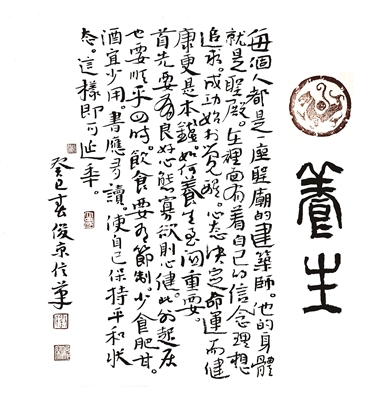 養生
每個人都是一座聖廟的建築師。他的身體
就是聖殿。在裡面有着自己的信念理想
追求。成功始於覺醒。心态決定命運而健
康更是本錢。如何養生至関重要。
首先要有良好心態寡欲則心健。此外起居
也要順乎四時。飲食要有節制。少食肥甘。
酒宜少用。書應多讀。使自己保持平和狀
态。這樣即可延年。
癸巳春俊京信筆